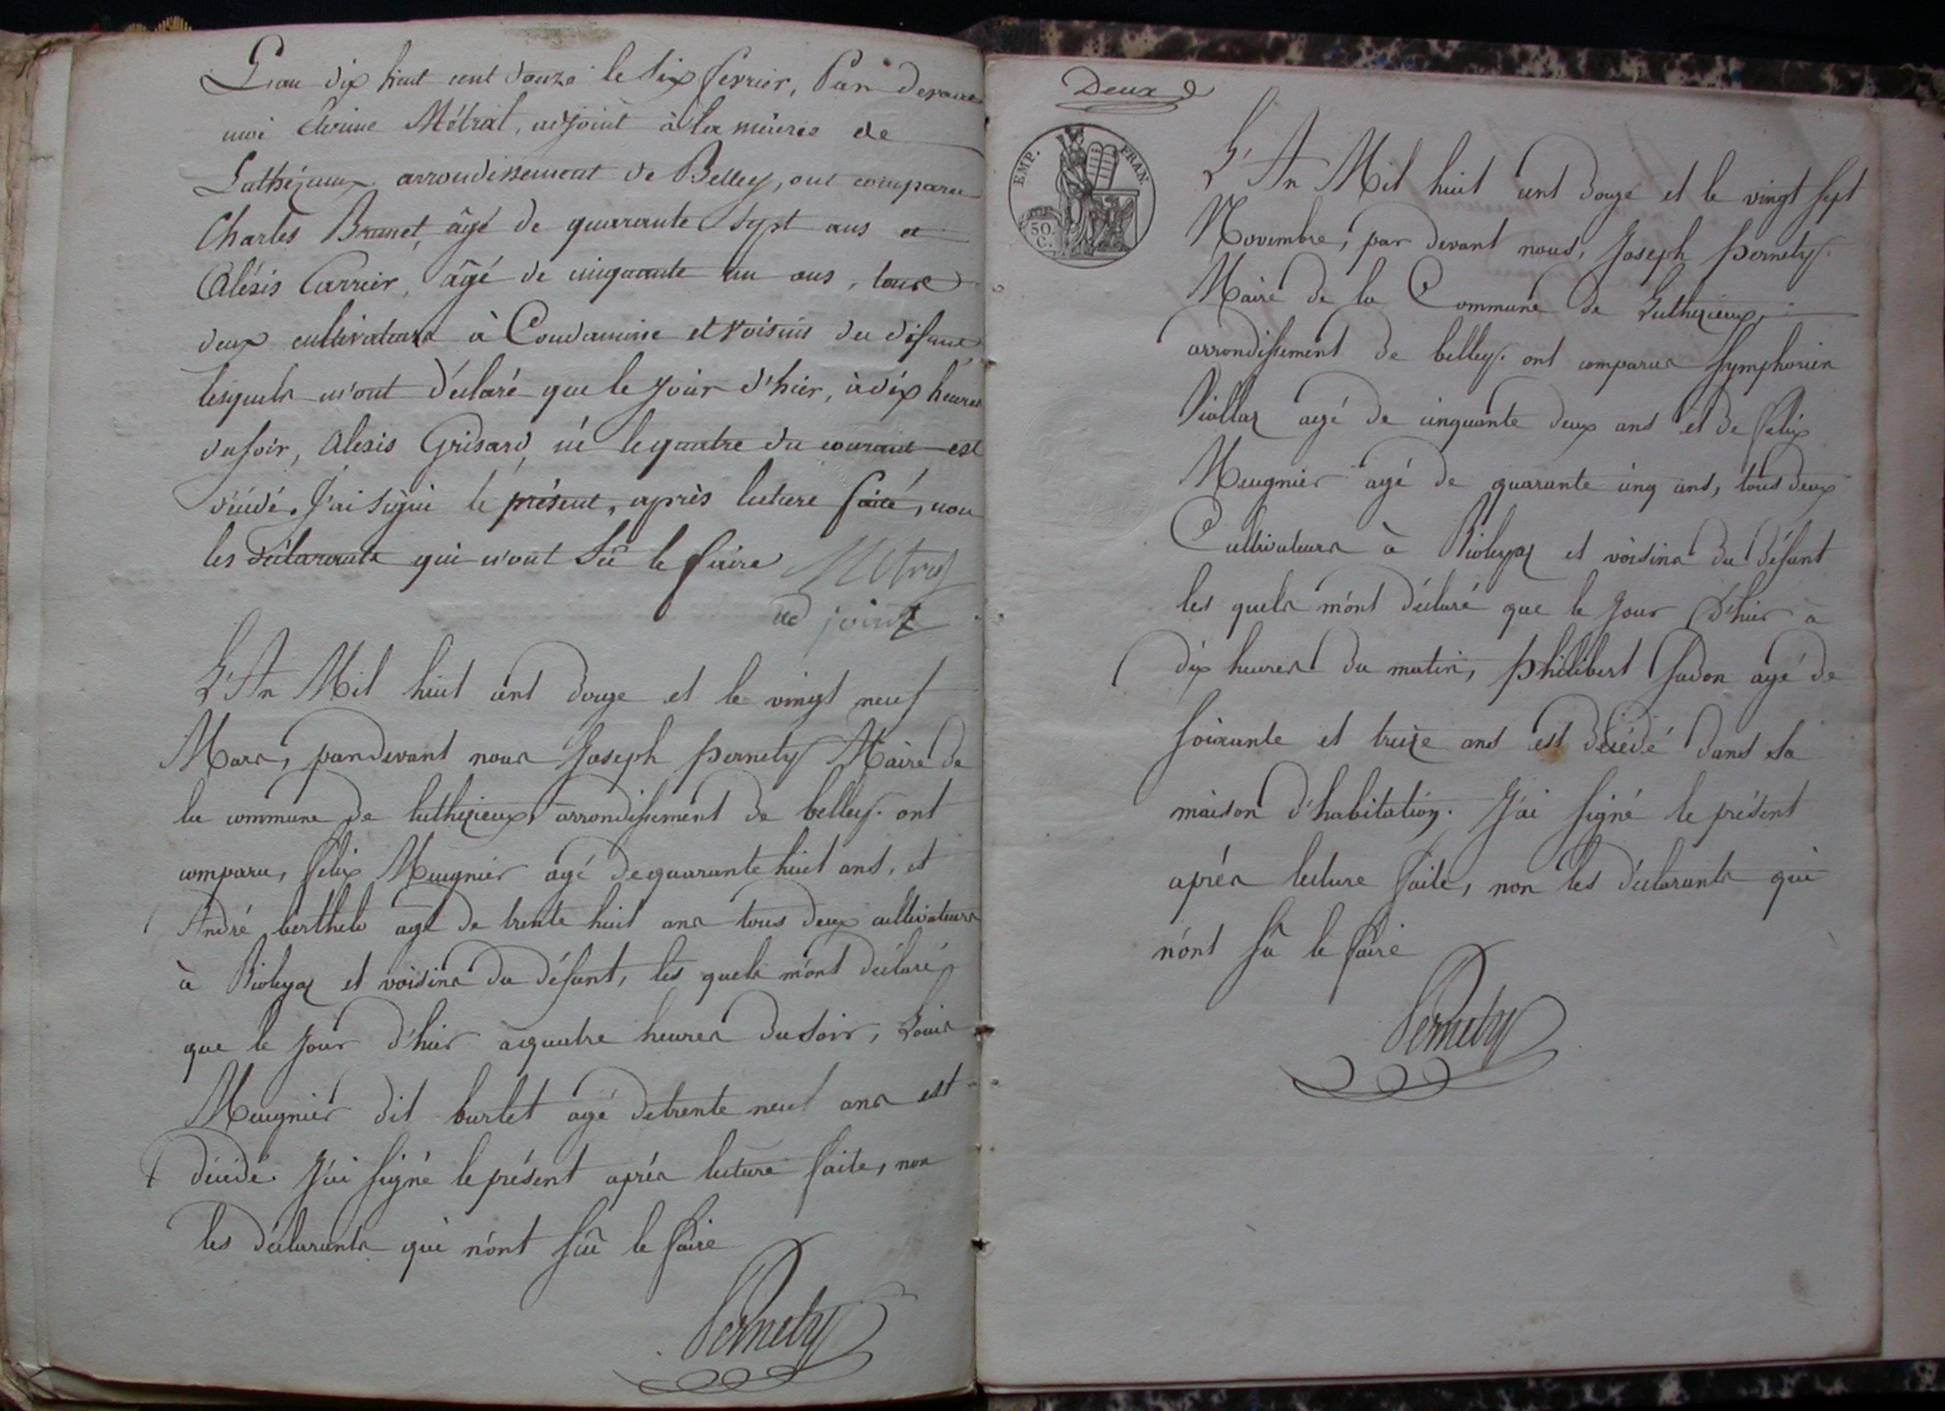 L'an dix huit cent douze le six fevrier, Par devant
moi Etienne Métral, adjoint à la mairie de
Luthézieux arrondissement de Belley, ont comparu
Charles Brunet, âgé de quarante sept ans et
Alexis Carrier, âgé de cinquante un ans, tous
deux cultivateurs à Condamine et voisins du défunt
lesquels m'ont déclaré que le jour d'hier, à dix heures
du soir, Alexis Grisard, né le quatre du courant est
décédé. J'ai signé le présent, après lecture faite, non
les déclarants qui n'ont sû le faire Métral
adjoint
L'An Mil huit cent douze et le vingt neuf
Mars, pardevant nous Joseph pernety Maire de
la commune de luthezieux, arrondissement de belley. ont
comparu, felix Meugnier agé de quarante huit ans, et
André berthelo agé de trente huit ans tous deux cultivateurs
à Bioleyaz et voisins du défunt, les quels m'ont déclaré
que le jour d'hier à quatre heures du soir, Louis
Meugnier dit burlet agé de trente neuf ans est
décédé. J'ai signé le présent après lecture faite, non
les déclarants qui n'ont sçû le faire
Pernety
Deux
EMP. FRAN.
50.
C.
L'An Mil huit cent douze et le vingt sept
Novembre, par devant nous, Joseph pernety.
Maire de la Commune de Luthezieux,
arrondissement de belley. ont comparus Symphorien
Viollaz agé de cinquante deux ans et de felix
Meugnier agé de quarante cinq ans, tous deux
Cultivateurs à Bioleyaz et voisins du défunt
les quels m'ont déclaré que le jour d'hier à
dix heures du matin, philibert Sadon agé de
soixante et treize ans est décédé dans sa
maison d'habitation. J'ai signé le présent
après lecture faite, non les déclarants qui
n'ont sû le faire
Pernety